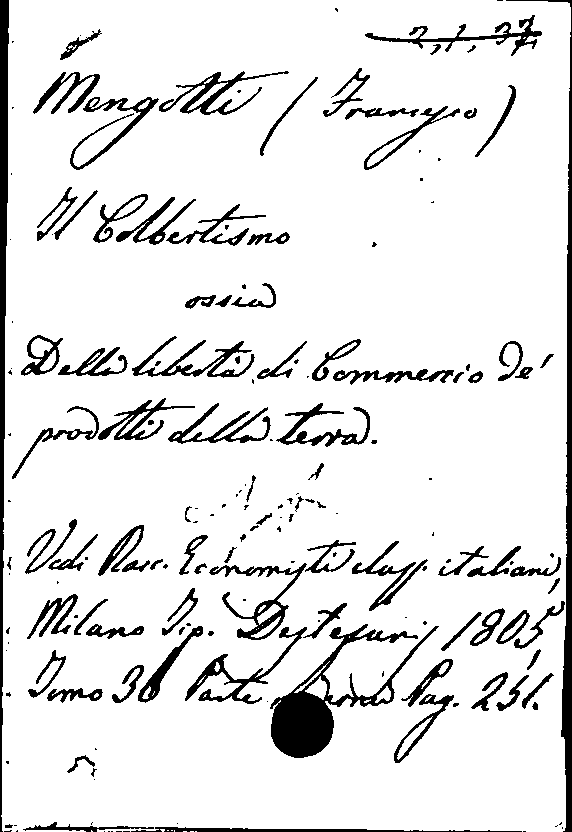 2, 1, 37
Mengotti (Francesco)
Il Colbertismo
ossia
Della libertà di Commercio de'
prodotti della terra.
Vedi Racc. Economisti class. italiani,
Milano Tip. Destefanis 1805,
Tomo 36 Parte Pag. 251.